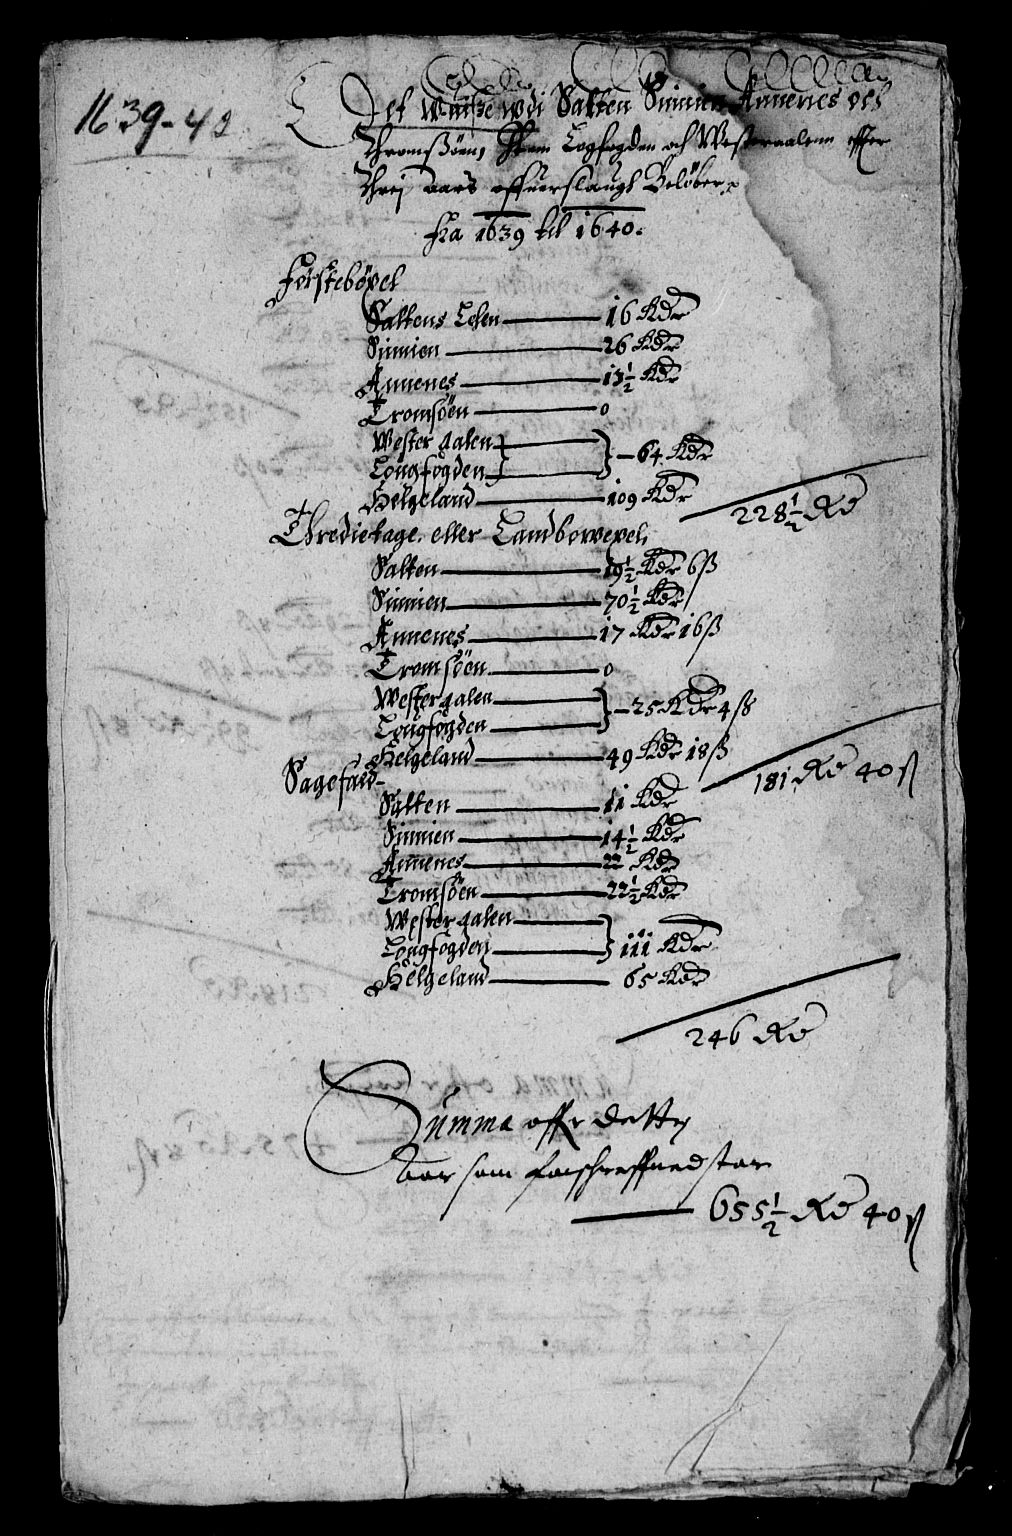 1639-40
Det Wuisße udi Salten Sinnien Annenes och
Thromsßøen, Item Logfogden och Westeraalenn effter
Threj aars offuerslaugh Beløber
fra 1639 til 1640.
Førstebøxel
Saltens Lehn 16 Rdr
Sinnien 26 Rdr
Annenes 13½ Rdr
Tromsøen 0
Wester aalen
Longfogden } 64 Rdr
Helgeland 109 Rdr
228½ Rd
Thredietage eller Landbowexel,
Salten 19½ Rdr 6 ß
Sinnien 70½ Rdr
Annenes 17 Rdr 16 ß
Tromsøen 0
Wester aalen
Longfogden } 25 Rdr 4 ß
Helgeland 49 Rdr 18 ß
181 Rd 40 ß
Sagefald
Salten 11 Rdr
Sinnien 14½ Rdr
Annenes 22 Rdr
Tromsøen 22½ Rdr
Wester aalen
Longfogden } 111 Rdr
Helgeland 65 Rdr
246 Rd
Summa offr dette
aar som forschreffned star
655½ Rd 40 ß